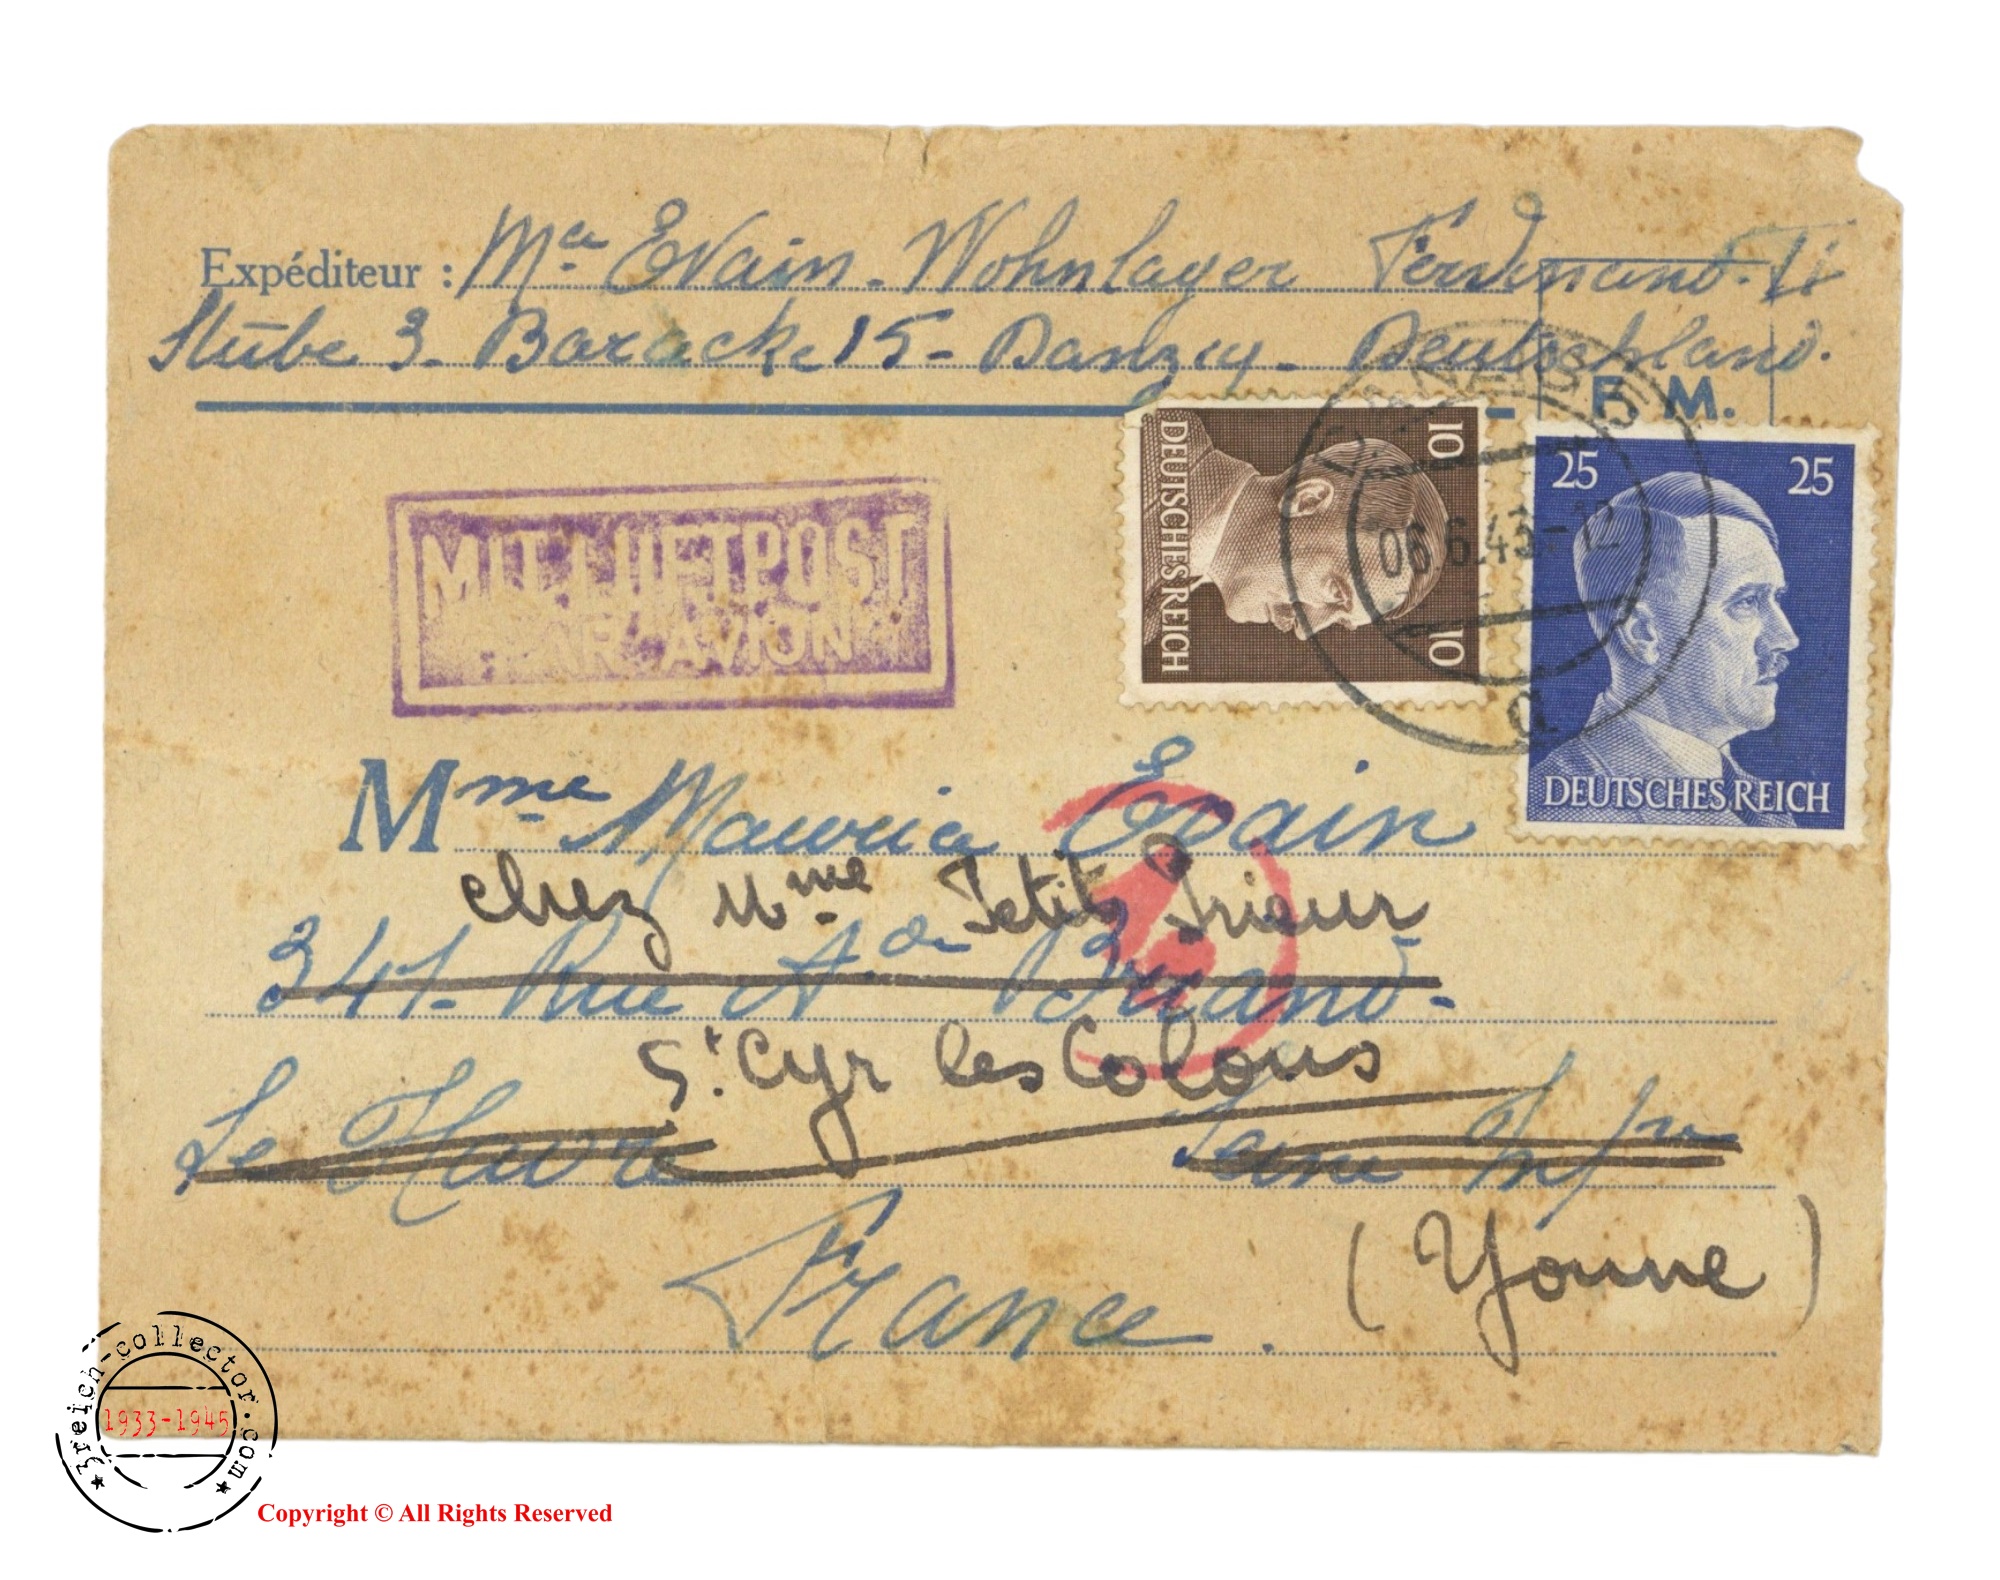 Expéditeur : Mce Evain - Wohnlager Ferdinand. II
Stube 3 - Baracke 15 - Danzig - Deutschland.
F. M.
10 10
DEUTSCHES REICH
25 25
DEUTSCHES REICH
06.6.43.-12
a
MIT LUFTPOST
PAR AVION
Mme Maurice Evain
chez Mme Petit Prieur
341 - Rue Ade Briand -
St Cyr les Colons
Le Havre Seine Infre
France. (Yonne)
3reich-collector.com
1933-1945
Copyright © All Rights Reserved